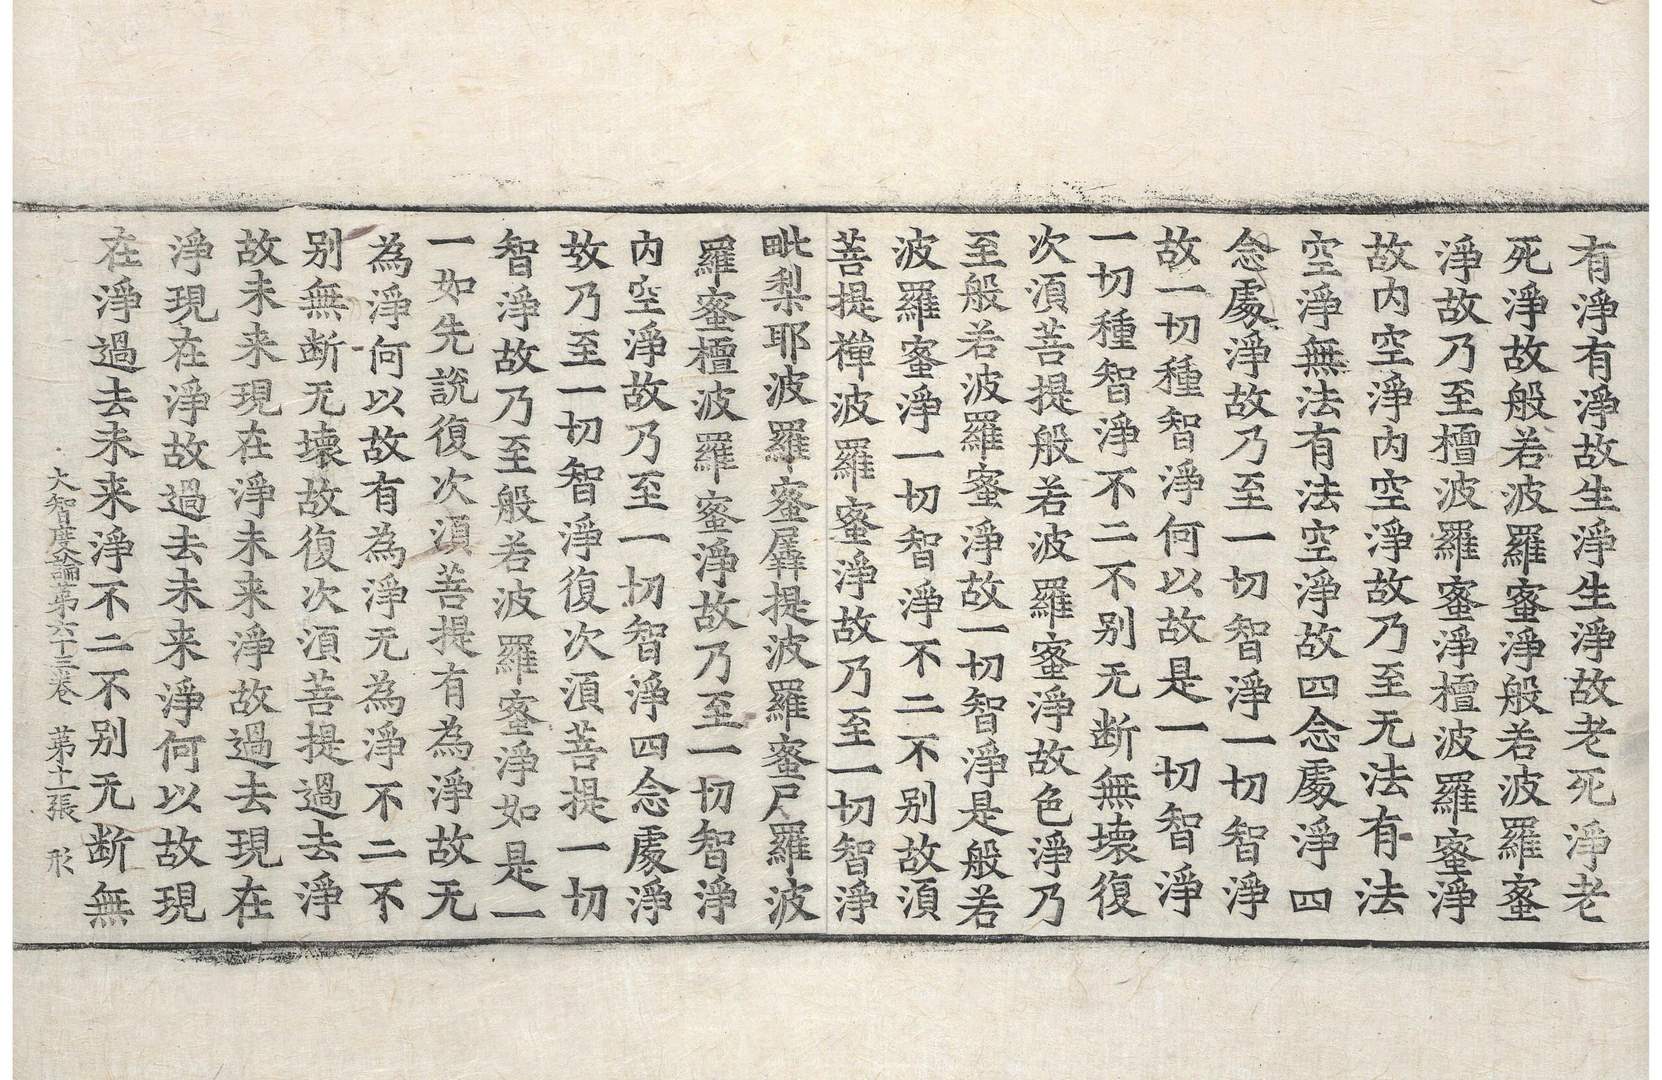 有淨有淨故生淨生淨故老死淨老
死淨故般若波羅蜜淨般若波羅蜜
淨故乃至檀波羅蜜淨檀波羅蜜淨
故内空淨内空淨故乃至无法有法
空淨無法有法空淨故四念處淨四
念處淨故乃至一切智淨一切智淨
故一切種智淨何以故是一切智淨
一切種智淨不二不别无断無壊復
次湏菩提般若波羅蜜淨故色淨乃
至般若波羅蜜淨故一切智淨是般若
波羅蜜淨一切智淨不二不别故湏
菩提禪波羅蜜淨故乃至一切智淨
毗梨耶波羅蜜羼提波羅蜜尸羅波
羅蜜檀波羅蜜淨故乃至一切智淨
内空淨故乃至一切智淨四念處淨
故乃至一切智淨復次湏菩提一切
智淨故乃至般若波羅蜜淨如是一
一如先說復次湏菩提有為淨故无
為淨何以故有為淨无為淨不二不
别無断无壊故復次湏菩提過去淨
故未来現在淨未来淨故過去現在
淨現在淨故過去未来淨何以故現
在淨過去未来淨不二不别无断無
大智度論苐六十三卷 苐十一張 形